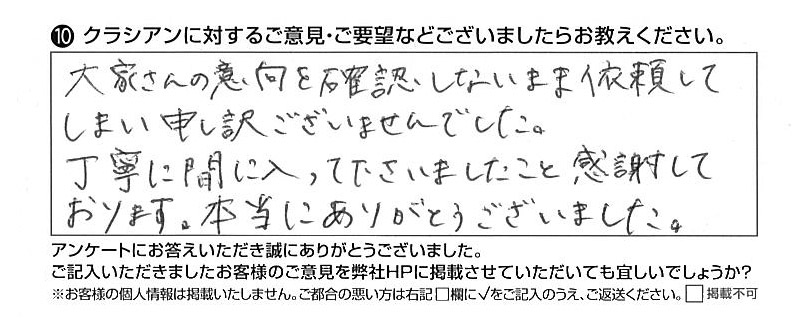 ⑩ クラシアンに対するご意見・ご要望などございましたらお教えください。
大家さんの意向を確認しないまま依頼して
しまい申し訳ございませんでした。
丁寧に間に入って下さいましたこと感謝して
おります。本当にありがとうございました。
アンケートにお答えいただき誠にありがとうございました。
ご記入いただきましたお客様のご意見を弊社HPに掲載させていただいても宜しいでしょうか?
※お客様の個人情報は掲載いたしません。ご都合の悪い方は右記□欄に√をご記入のうえ、ご返送ください。□掲載不可